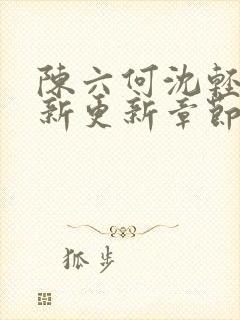 陳六何沈輕
新更新章節
狐步